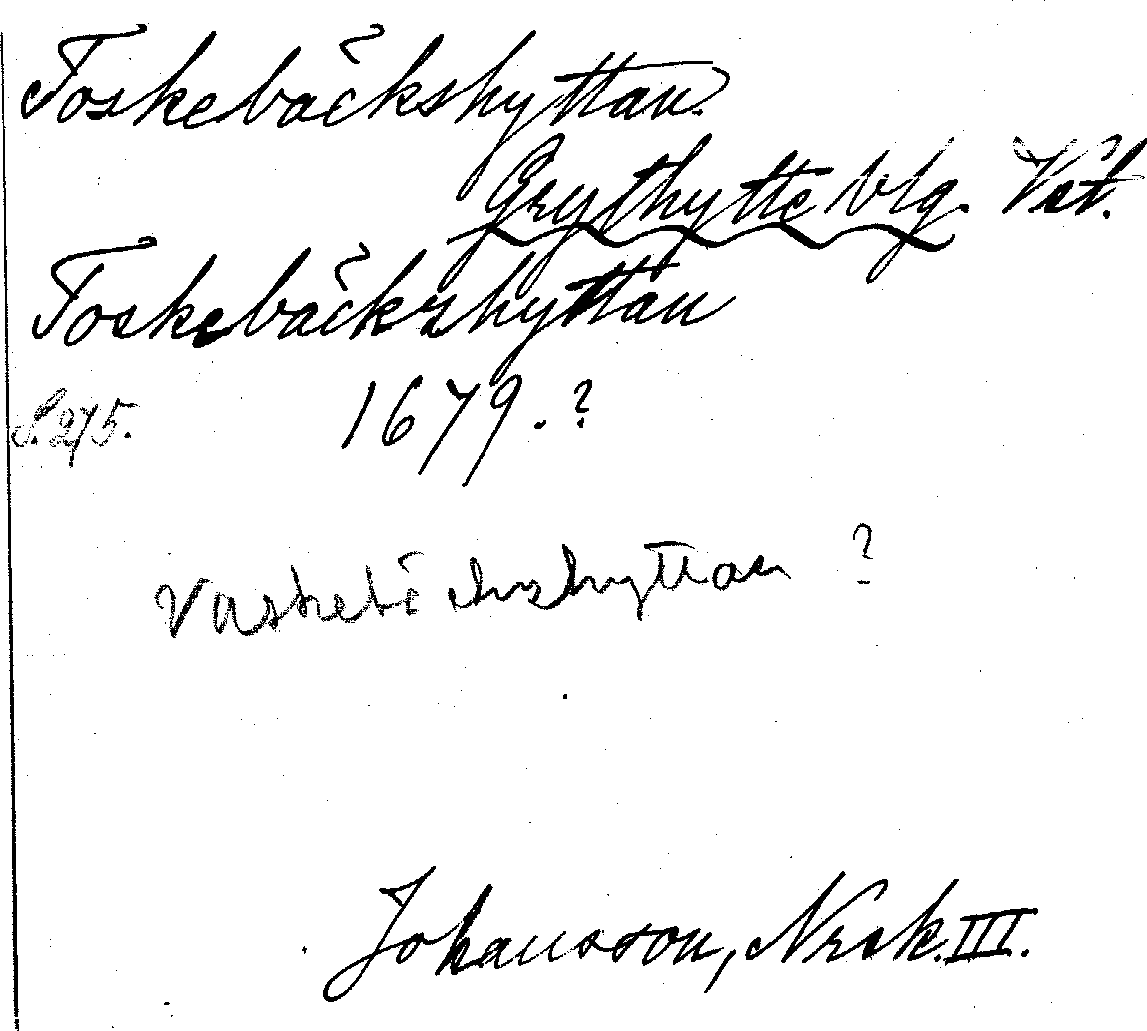 Toskebäckshyttan.
Grythytte blg. Vst.
Toskebäckshyttan
S. 275. 1679.?
Vaskebäckshyttan ?
Johansson, Nrsk. III.